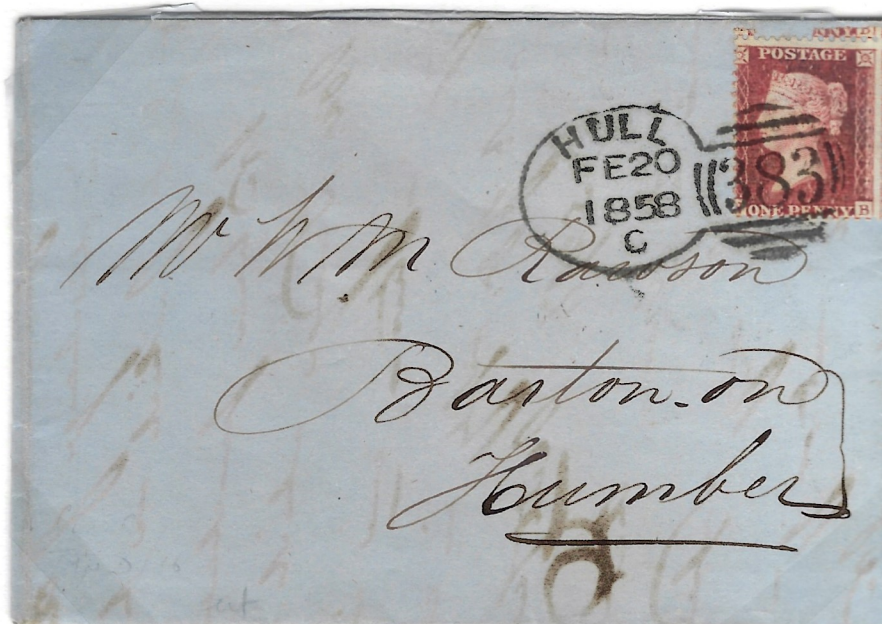 POSTAGE
ONE PENNY B
HULL
FE20
1858
C
383
Mr Wm Rawson
Barton-on
Humber